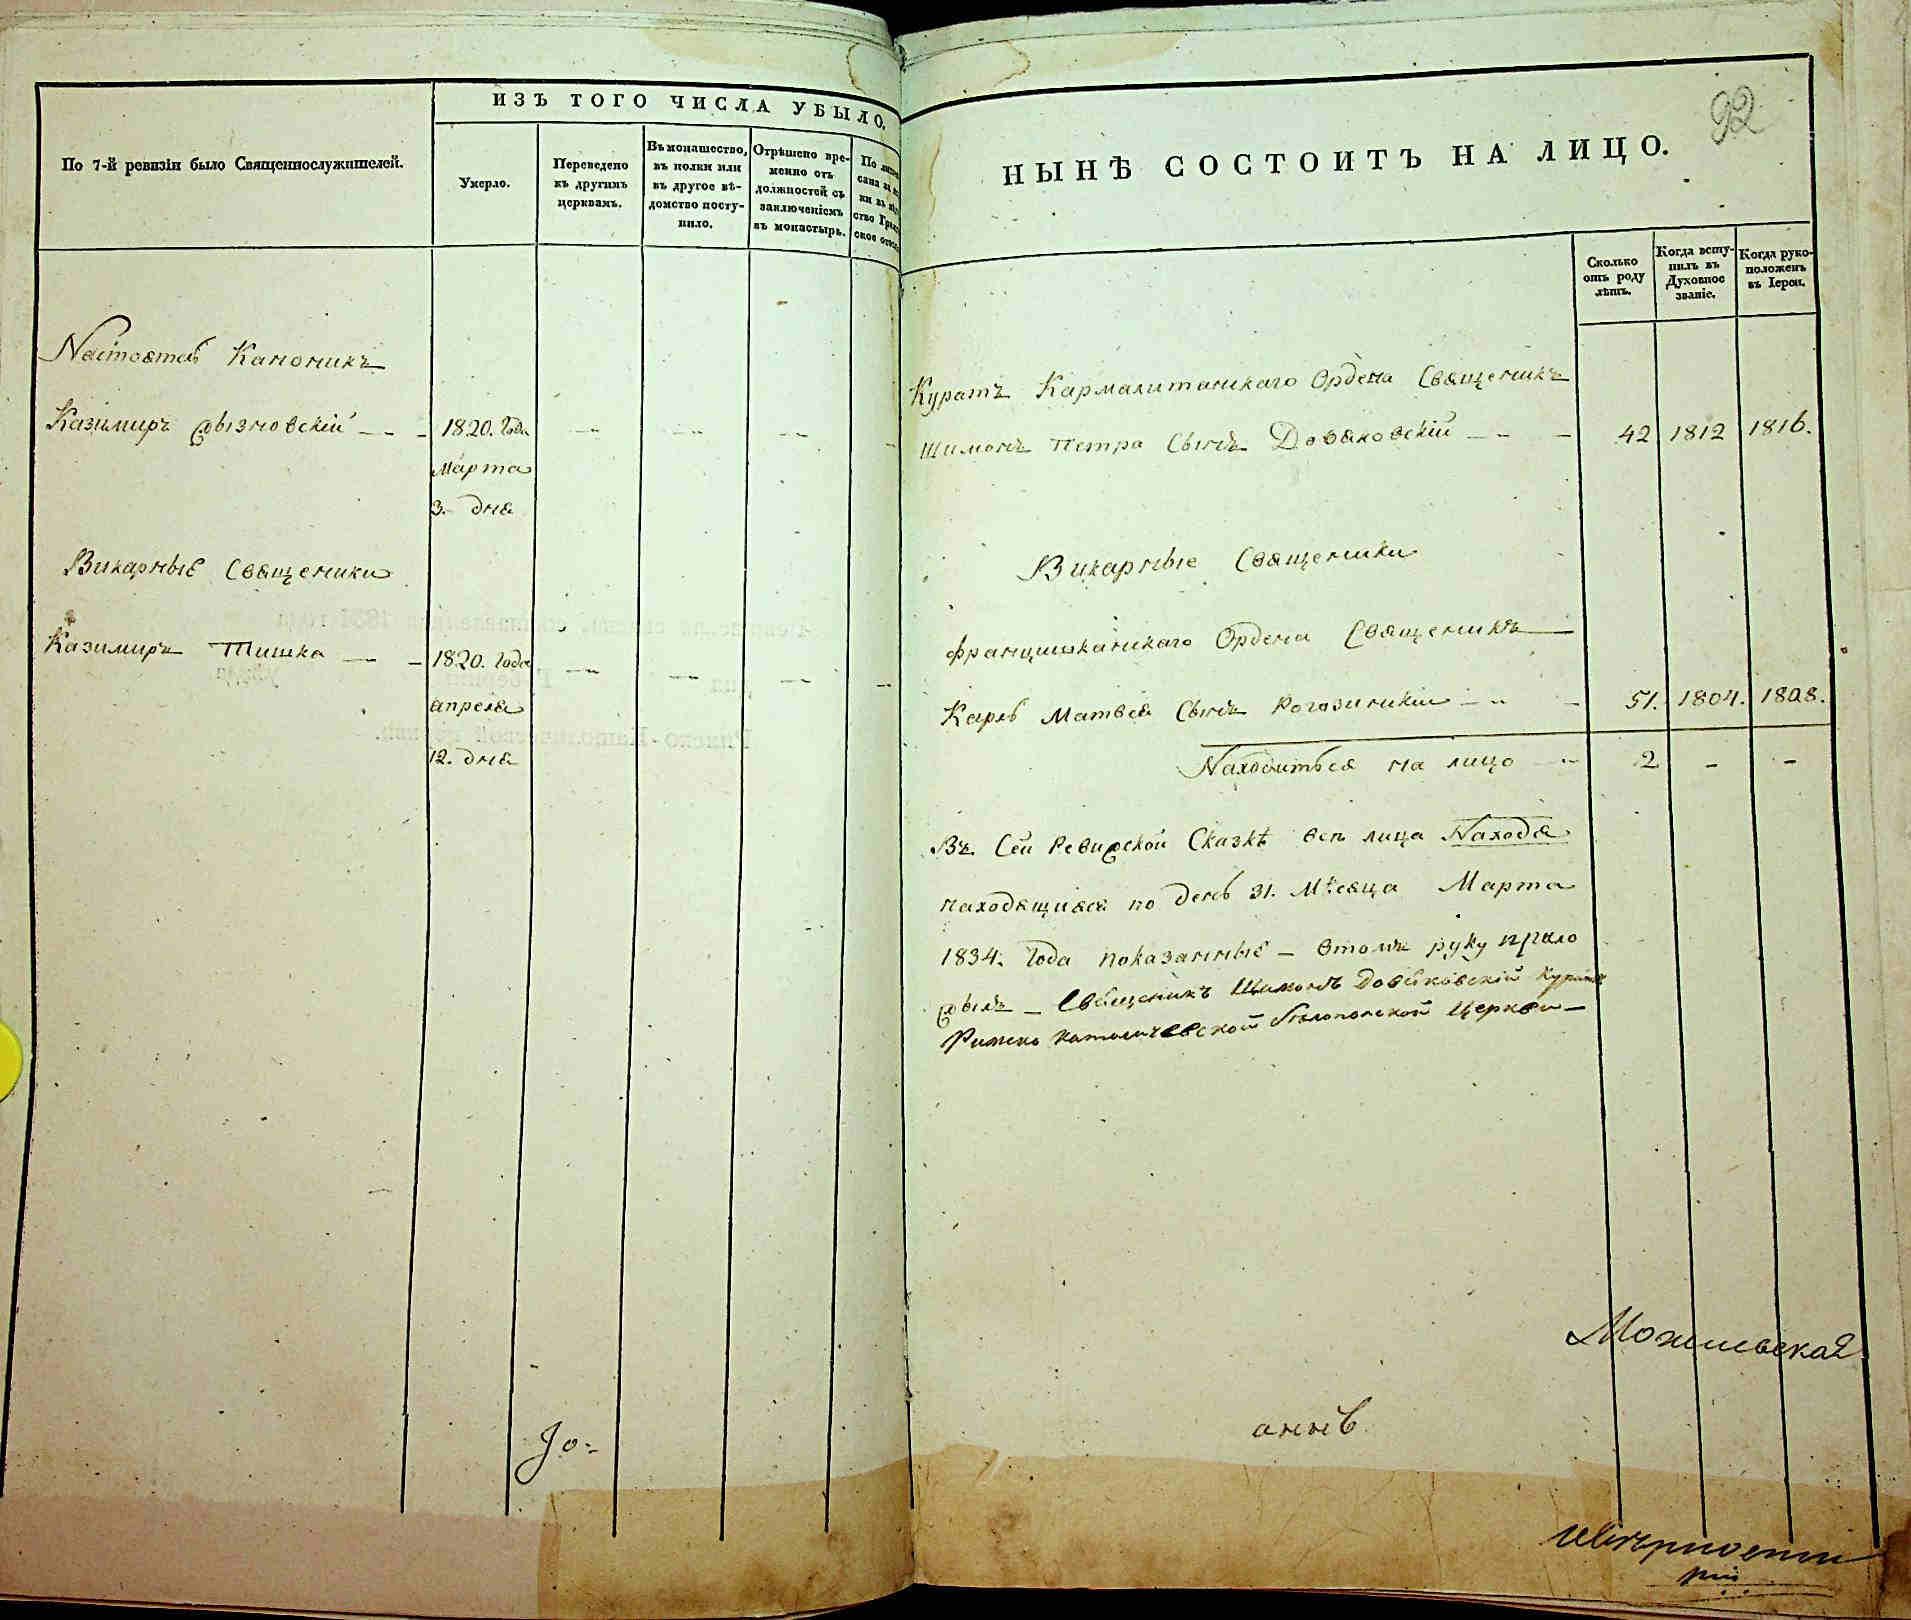 ИЗЪ ТОГО ЧИСЛА УБЫЛО.
По 7-й ревизіи было Священнослужителей.
Умерло.
Переведено
къ другимъ
церквамъ.
Въ монашество,
въ полки или
въ другое вѣ-
домство посту-
пило.
Отрѣшено вре-
менно отъ
должностей съ
заключеніемъ
въ монастырь.
По
сана за
ки въ
ство
ское
Настоятель Каноникъ
Казимиръ
1820. Года
Марта
3. дня
Викарные Священики
Казимиръ Тишка
1820. Года
апреля
12. дня
92
НЫНѢ СОСТОИТЪ НА ЛИЦО.
Сколько
отъ роду
лѣтъ.
Когда всту-
пилъ въ
Духовное
званіе.
Когда руко-
положенъ
въ Іереи.
Куратъ Кармалитанскаго Ордена Священикъ
Шимонъ Петра Сынъ Довяковскій 42 1812 1816.
Викарные Священики
Францишканскаго Ордена Священикъ
Карль Матвея Сынъ Рогозинскіи 51. 1804. 1808.
Находиться на лицо 2 - -
Въ Сей Ревизской Сказкѣ всѣ лица Находя
находящияся по день 31. Мѣсяца Марта
1834. Года показанные – втомъ руку прило
жылъ – Священикъ Шимонъ Довяковскій Куратъ
Римско Католической Бѣлопольской Церкви –